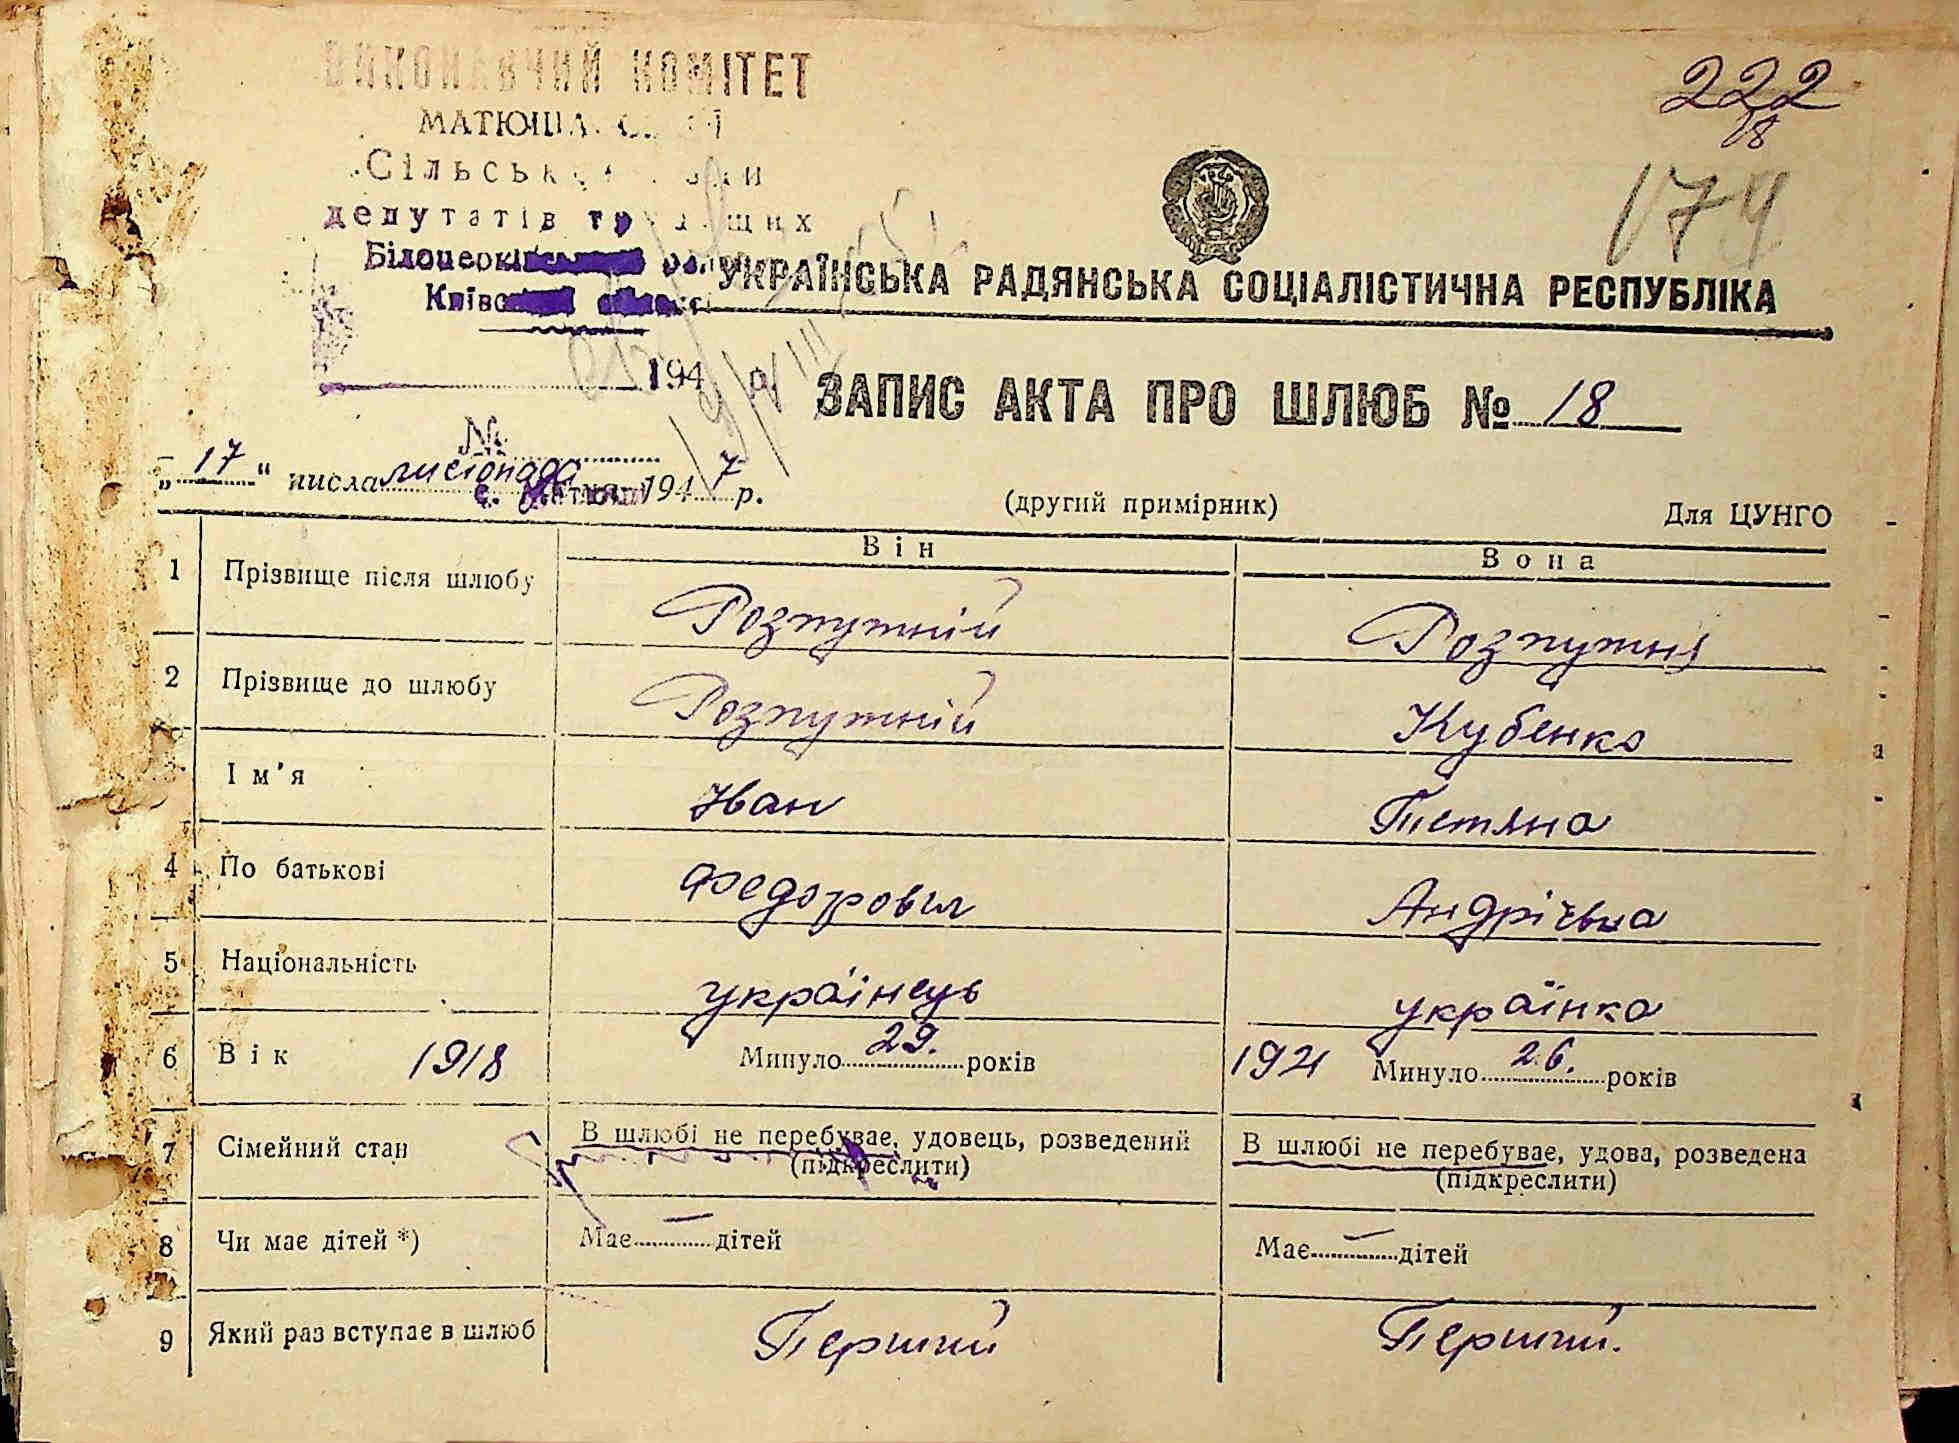 ВИКОНАВЧИЙ КОМІТЕТ
222
18
174
депутатів
УКРАЇНСЬКА РАДЯНСЬКА СОЦІАЛІСТИЧНА РЕСПУБЛІКА
194 р.
ЗАПИС АКТА ПРО ШЛЮБ № 18
№
„17“ числа листопада 1947 р.
(другий примірник)
Для ЦУНГО
Він Вона
1 Прізвище після шлюбу Розпутній Розпутня
2 Прізвище до шлюбу Розпутній Кубенко
Ім'я Іван Тетяна
4 По батькові Федорович Андріївна
5 Національність українець українка
6 Вік 1918 Минуло 29. років 1921 Минуло 26. років
7 Сімейний стан В шлюбі не перебуває, удовець, розведений В шлюбі не перебуває, удова, розведена
(підкреслити) (підкреслити)
8 Чи має дітей *) Має — дітей Має — дітей
9 Який раз вступає в шлюб Перший Перший.